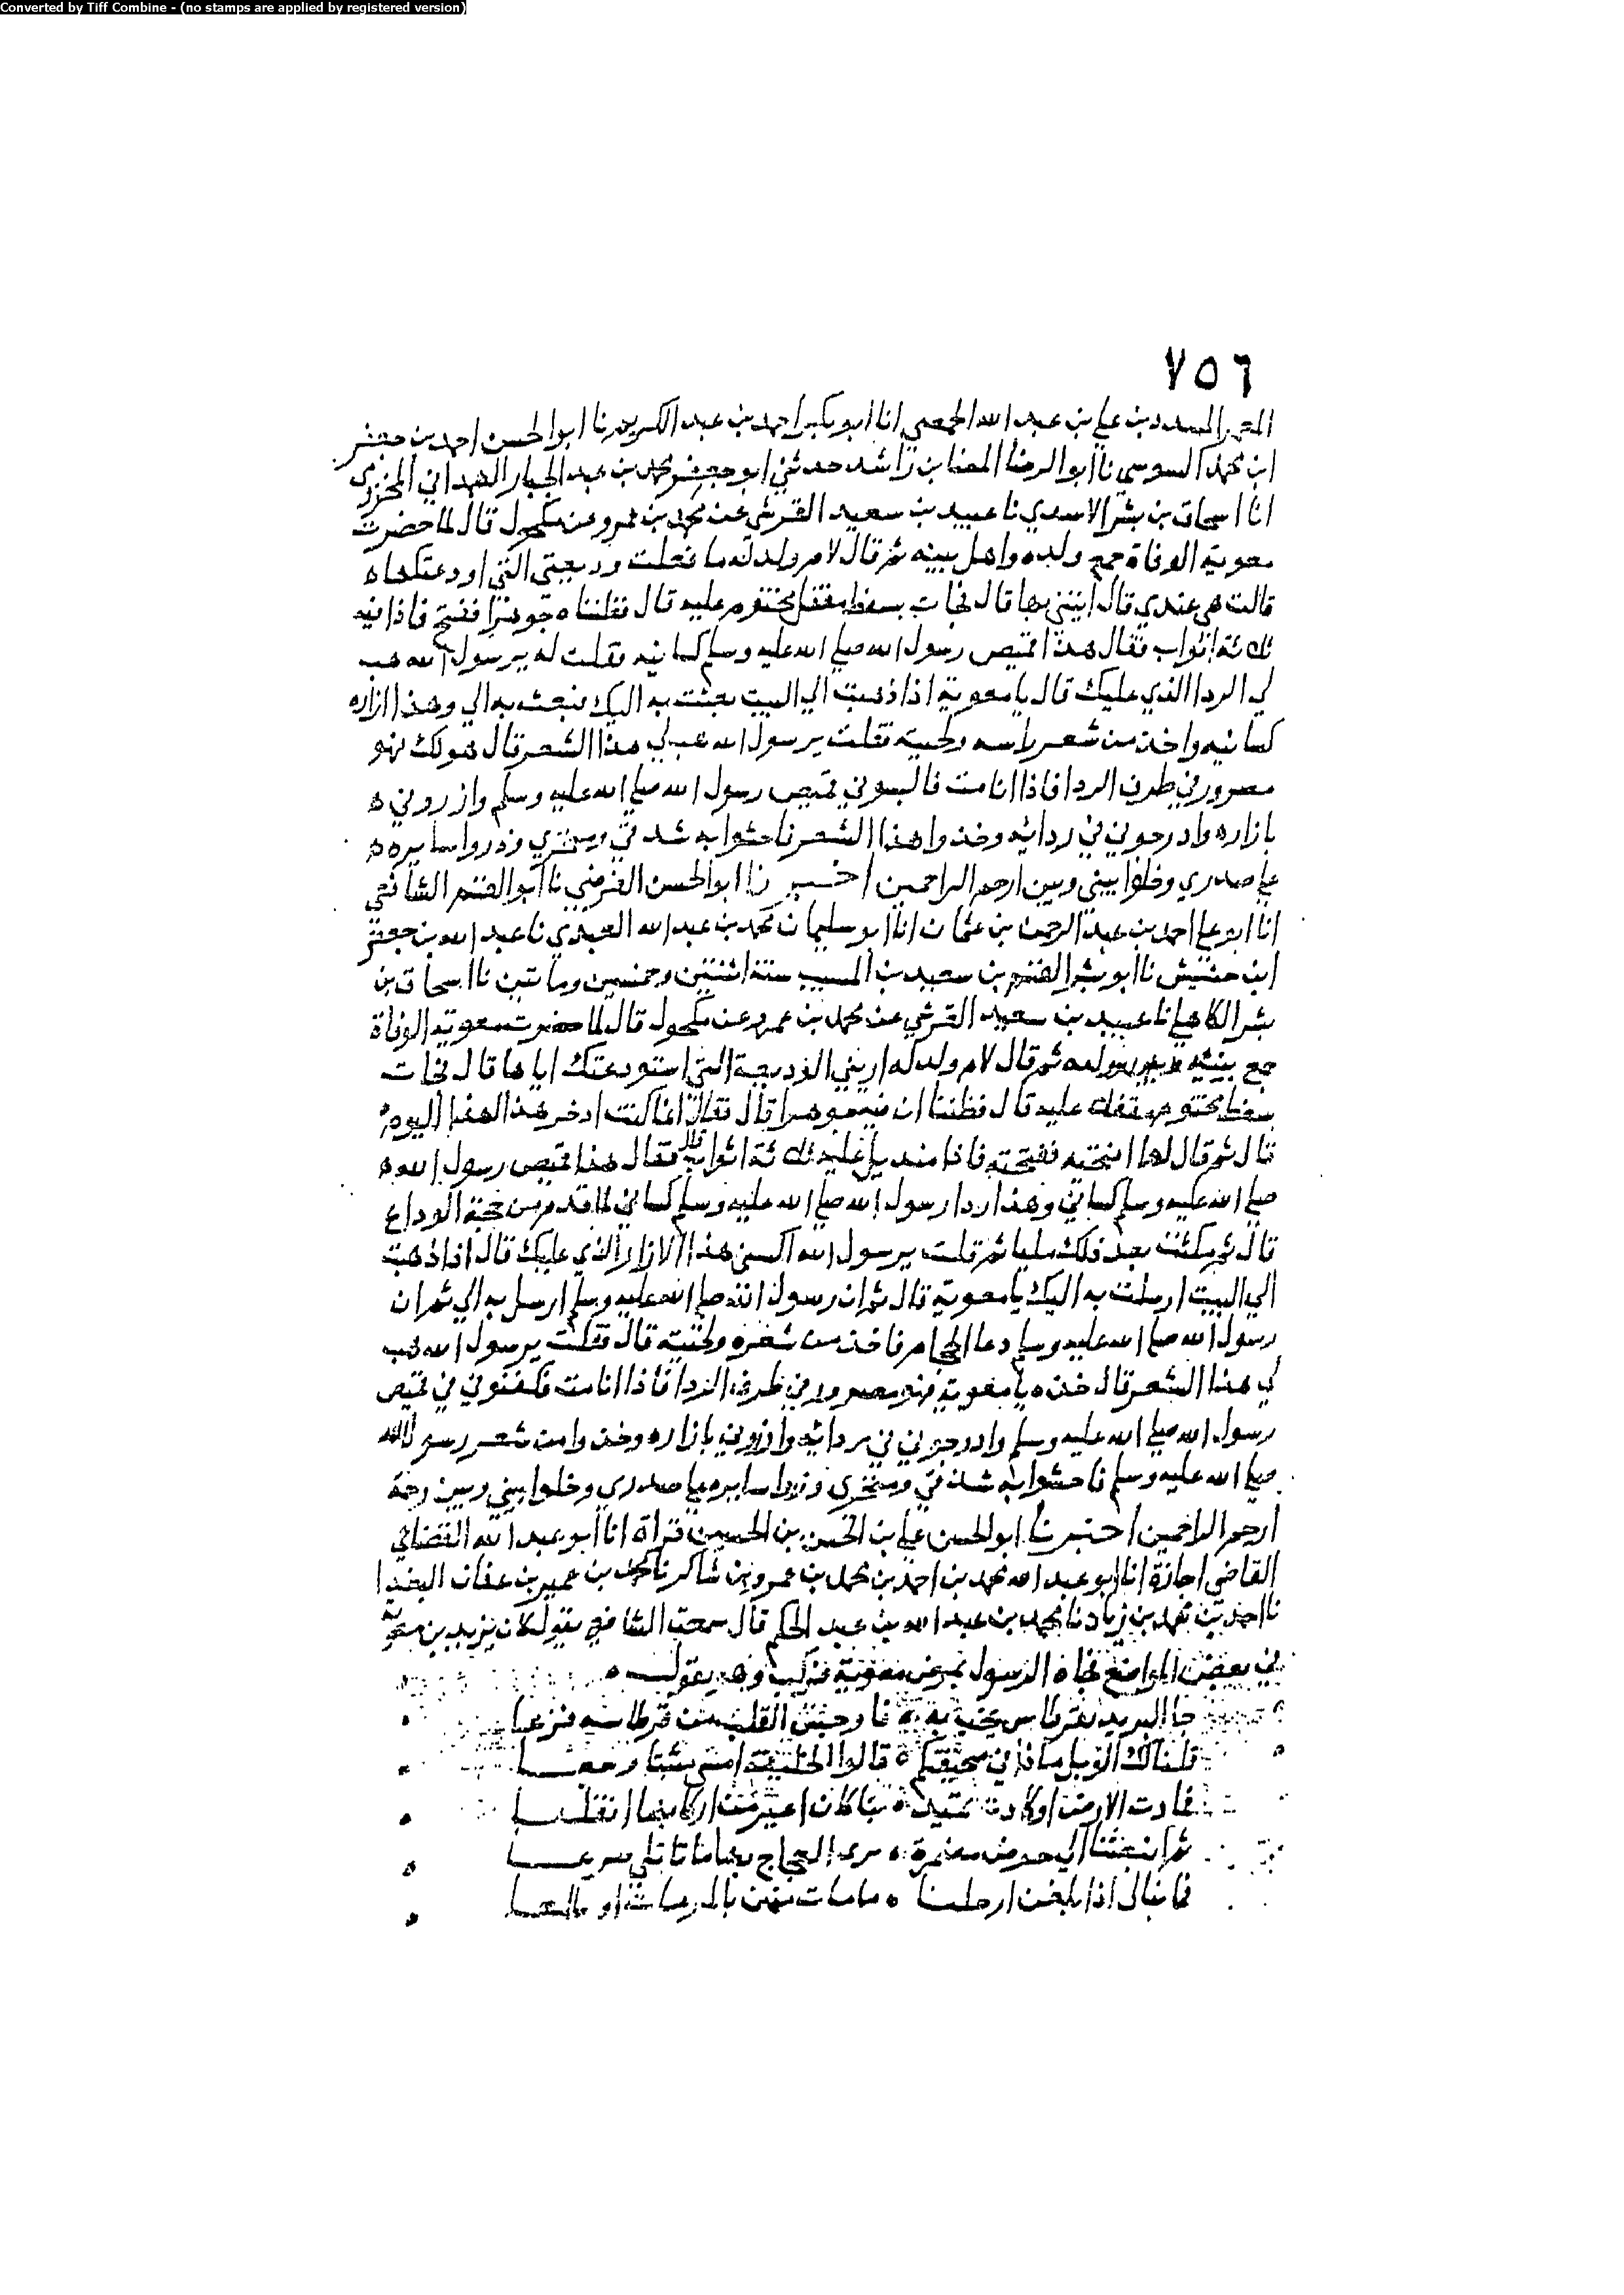 Converted by Tiff Combine - (no stamps are applied by registered version)
٧٥٦
المسدد بن علي بن عبد الله الحمصي انا ابو بكر احمد بن عبد الكريم نا ابو الحسن احمد بن جعفر
ابن محمد السوسي نا ابو الرضا بن راشد حدثني ابو جعفر محمد بن عبد الجبار الهمداني
انا اسحاق بن بشر الاسدي نا عبيد بن سعيد القرشي عن محمد بن عمرو عن مكحول قال لما حضرت
معوية الوفاة جمع ولده واهل بيته ثم قال لام ولد له ما فعلت وديعتي التي اودعتكها ه
قالت هي عندي قال ايتني بها قال فجات بسفط مقفل مختوم عليه قال فظننا ه جوهرا ففتح فاذا فيه
ثلاثة اثواب فقال هذا قميص رسول الله صلي الله عليه وسلم كسانيه فقلت له يرسول الله هب
لي الردا الذي عليك قال يا معوية اذا ذهبت الي البيت بعثت به اليك فبعث به الي وهذا ازاره
كسانيه واخذ من شعر راسه ولحيته فقلت يرسول الله هب لي هذا الشعر قال هو لك فهو
مصرور في طرف الردا فاذا انا مت فالبسوني قميص رسول الله صلي الله عليه وسلم وازروني ه
بازاره وادرجوني في ردائه وخذوا هذا الشعر فاحشوا به شدقي ومنخري وذروا سايره ه
علي صدري وخلوا بيني وبين ارحم الراحمين اخبرنا ابو الحسن الفرضي نا ابو الفتح الشافعي
انا ابو علي احمد بن عبد الرحمن بن عثمان انا ابو سليمان محمد بن عبد الله العبدي نا عبد الله بن جعفر
ابن حشيش نا ابو بشر بن سعيد بن المسيب سنة اثنتين وخمسين وماتين نا اسحاق بن
بشر الكاهلي نا عبيد بن سعيد القرشي عن محمد بن عمرو عن مكحول قال لما حضرت معوية الوفاة
جمع بنيه ثم قال لام ولد له اريني الوديعة التي استودعتك اياها قال فجات
بسفط مختوم مقفل عليه قال فظننا ان فيه جوهرا قال فقال انما كنت ادخر هذا لهذا اليوم
قال ثم قال لها افتحيه ففتحته فاذا منديل عليه ثلاثة اثواب قال فقال هذا قميص رسول الله ه
صلي الله عليه وسلم كساني وهذا ردا رسول الله صلي الله عليه وسلم كساني لما قدم من حجة الوداع
قال ثم مكثت بعد ذلك مليا ثم قلت يرسول الله اكسني هذا الازار الذي عليك قال اذا ذهبت
الي البيت ارسلت به اليك يا معوية قال ثم ان رسول الله صلي الله عليه وسلم ارسل به الي ثم ان
رسول الله صلي الله عليه وسلم دعا الحجام فاخذ من شعره ولحيته قال فقلت يرسول الله هب
لي هذا الشعر قال خذه يا معوية فهو مصرور في طرف الردا فاذا انا مت فكفنوني في قميص
رسول الله صلي الله عليه وسلم وادرجوني في ردائه وازروني بازاره وخذوا من شعر رسول الله
صلي الله عليه وسلم فاحشوا به شدقي ومنخري وذروا سايره علي صدري وخلوا بيني وبين رحمة
ارحم الراحمين اخبرنا ابو الحسن علي بن الحسن بن الحسين قراة انا ابو عبد الله القضاعي
القاضي اجازة انا ابو عبد الله محمد بن احمد بن محمد بن عمرو بن شاكر نا محمد بن عمير بن عفان البغدا
نا احمد بن محمد بن زياد نا محمد بن عبد الله بن عبد الحكم قال سمعت الشافعي يقول كان يزيد بن معوية
في بعض المواضع فجاه الرسول بمرض معوية فركب وهو يقول ه
جا البريد بقرطاس يخب به ه فاوجس القلب من قرطاسه فزعا
قلنا لك الويل ماذا في صحيفتكم ه قالوا الخليفة امسي مثبتا وجعا
فمادت الارض او كادت تميد ه بنا كان اغبر من اركانها انقلعا
ثم انبعثنا الي خوص مضمرة ه نرمي العجاج بها ما تاتلي سرعا
فما نبالي اذا بلغن ارحلنا ه ما مات منهن بالمرمات او ظلعا